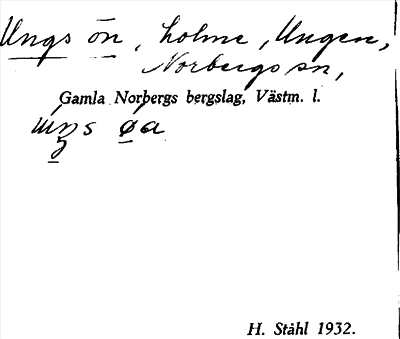 Ungs ön, holme, Ungen,
Norbergs sn,
Gamla Norbergs bergslag, Västm. l.
uŋs øa
H. Ståhl 1932.